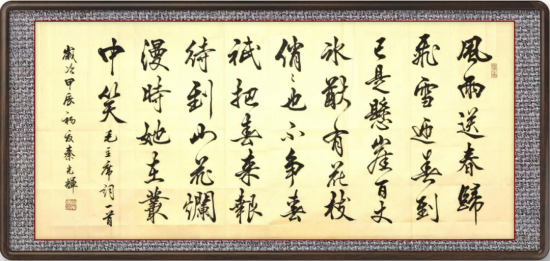 風雨送春歸
飛雪迎春到
已是懸崖百丈
冰猷有花枝
俏〻也不争春
祇把春来報
待到山花爛
漫時她在叢
中笑 毛主席詞一首
歲次甲辰初夏秦光輝